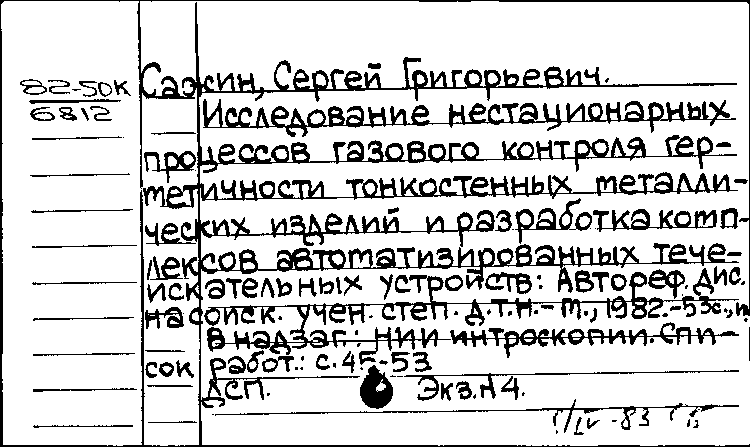 82-50К
6812
Сажин, Сергей Григорьевич.
Исследование нестационарных
процессов газового контроля гер-
метичности тонкостенных металли-
ческих изделий и разработка комп-
лексов автоматизированных тече-
искательных устройств: Автореф. дис.
на соиск. учен. степ. д.т.н. - М., 1982.-53с.,
В надзаг.: НИИ интроскопии. Спи-
сок работ.: с. 45-53
ДСП. Экз. N 4.
IV -83